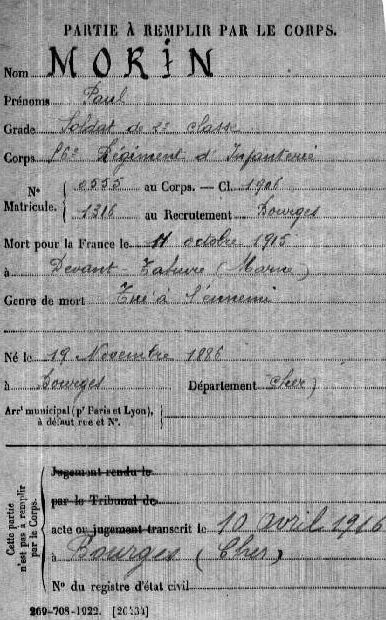 PARTIE À REMPLIR PAR LE CORPS.
Nom MORIN
Prénoms Paul
Grade Soldat de 2e classe
Corps 56e Régiment d'Infanterie
N° Matricule. 0555 au Corps. — Cl. 1906
1316 au Recrutement Bourges
Mort pour la France le 11 octobre 1915
à Devant-Tahure (Marne)
Genre de mort Tué à l'ennemi
Né le 19 Novembre 1886
à Bourges Département Cher)
Arr^t municipal (p^r Paris et Lyon),
à défaut rue et N°.
Cette partie n'est pas à remplir par le Corps.
Jugement rendu le
par le Tribunal de
acte ou jugement transcrit le 10 avril 1916
à Bourges (Cher)
N° du registre d'état civil
269-708-1922. [26434]